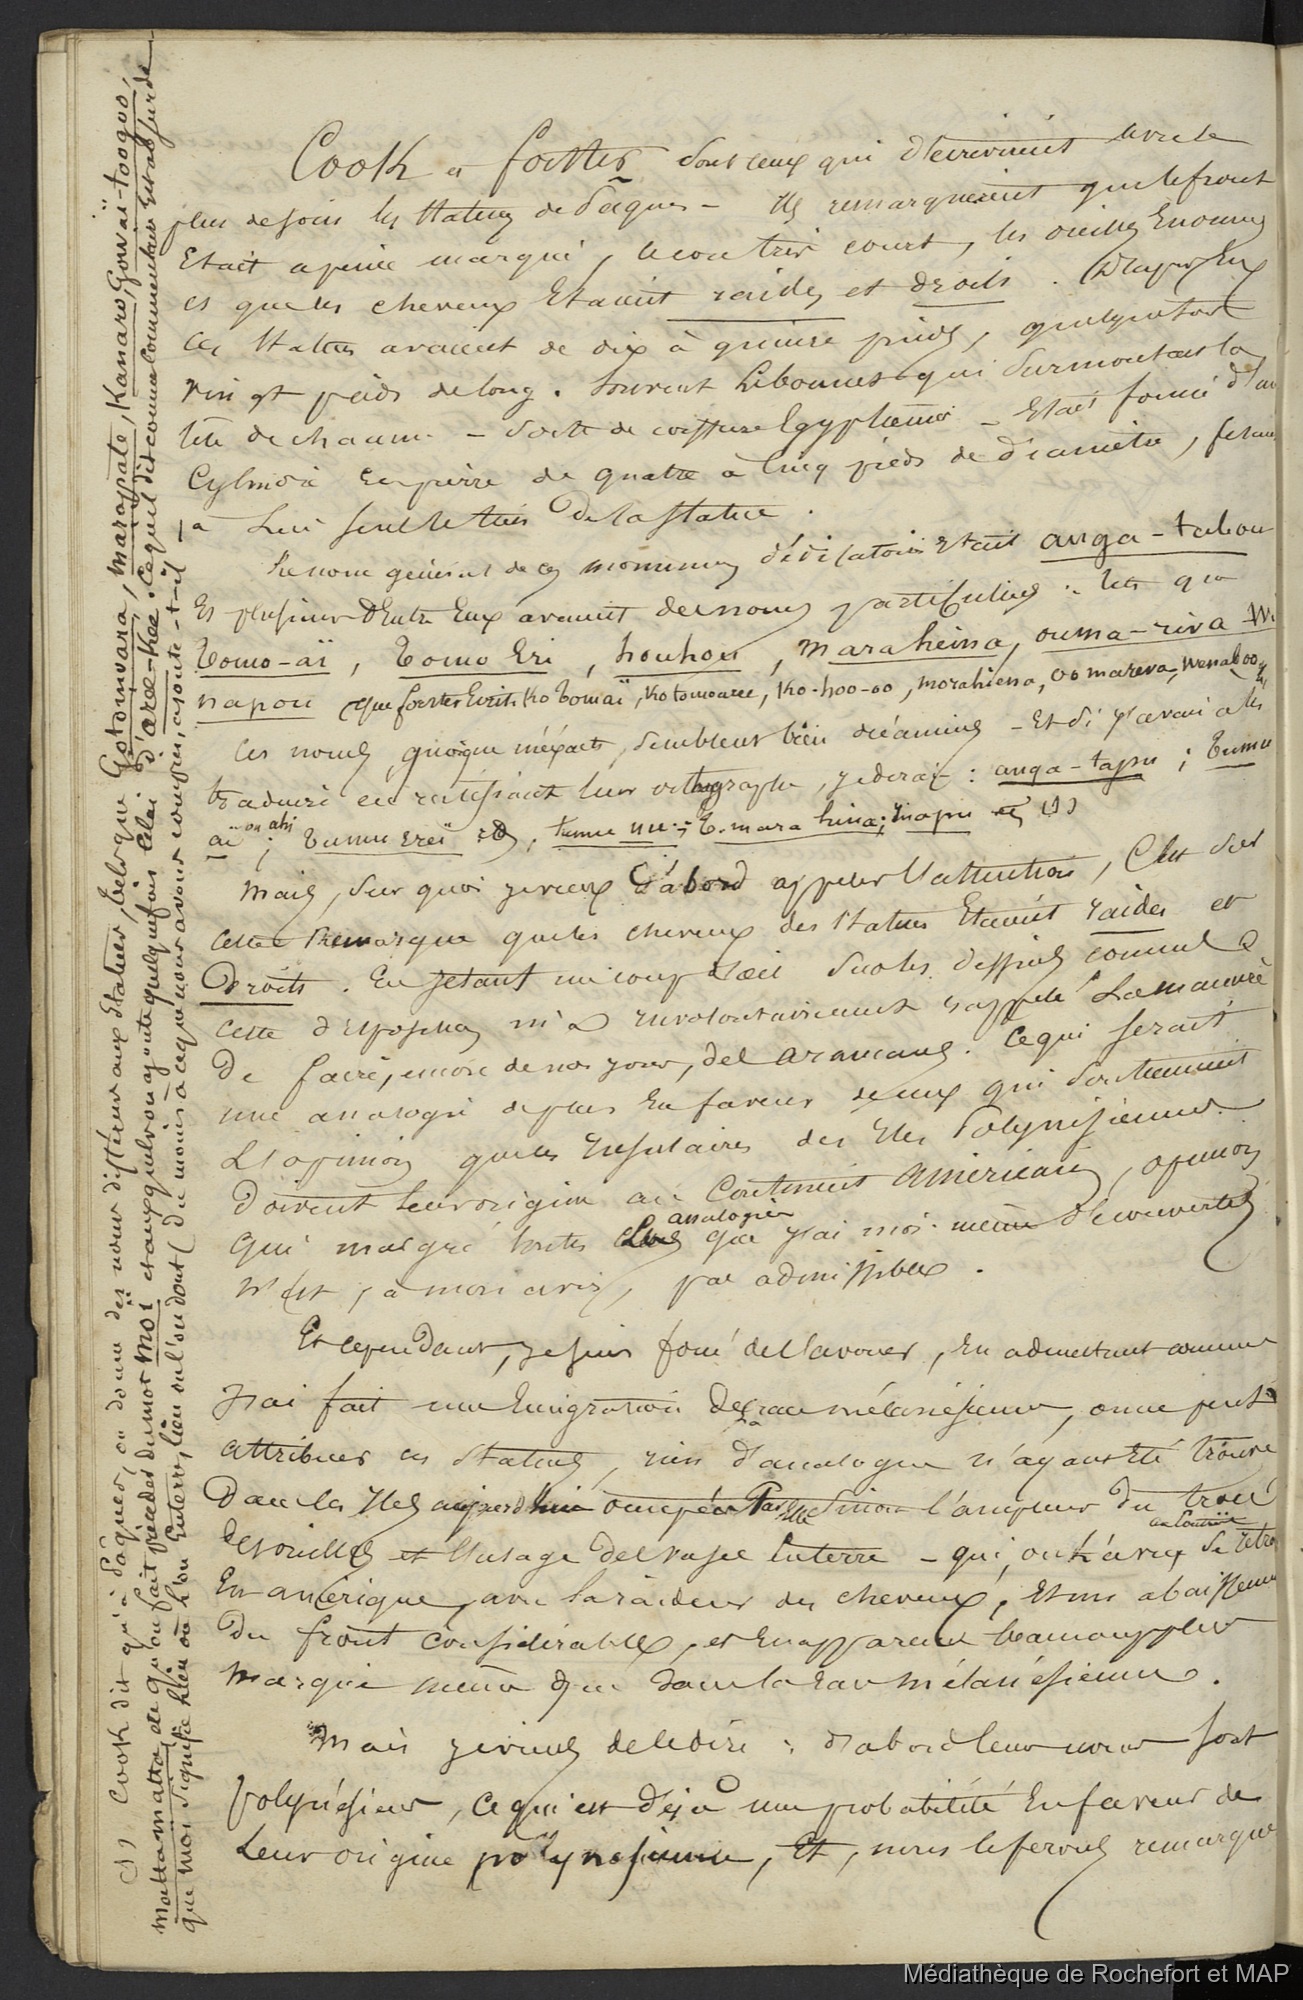 Cook et Forster sont ceux qui décrivirent avec le
plus de soin les statues de Pâques - Ils remarquèrent que le front
était à peine marqué, le contraire court, les oreilles énormes
et que les cheveux étaient raides et droits. D'après eux
ces statues avaient de dix à quinze pieds, quelquefois
vingt pieds de long. Souvent le bonnet qui surmontait la
tête de chacune - sorte de coiffure Egyptienne - était formé d'un
cylindre en pierre de quatre à cinq pieds de diamètre, faisant
à lui seul le tiers de la statue.
Le nom général de ces monuments dédicatoires était anga-tabou
Et plusieurs d'entre eux avaient des noms particuliers : tels que
Tomo-aï, Tomo Eri, houhou, maraheina, ouma-riva Wi
napou que Forster écrit Ko Tomaï, Ko tomoaree, Ko-hoo-oo, morahiena, oomareva, wenaboo
Ces noms, quoique inexacts, semblent bien océaniens - Et si j'avais à les
traduire en rectifiant leur orthographe, je dirais : anga-tapu ; Tumu
aï ou ahi ; Tumu ereï ; tumu uu ; T. mara hina ; Inapu (1)
Mais, sur quoi je veux d'abord appeler l'attention, c'est sur
cette remarque que les cheveux des statues étaient raides et
droits. En jetant un coup d'oeil sur les dessins comme
cette m'a involontairement rappelé la manière
de faire, encore de nos jours, des araucans. Ce qui serait
une analogie de plus en faveur de ceux qui soutiennent
l'opinion que les insulaires des Iles Polynésiennes
doivent leur origine au Continent américain, opinion
qui malgré toutes les analogies que j'ai moi-même découvertes
n'est, à mon avis, pas admissible.
Et cependant, je suis forcé de l'avouer, en admettant comme
j'ai fait une émigration de la race mélanésienne, on ne peut
attribuer ces statues, rien d'analogue n'ayant été trouvé
dans les Iles aujourd'hui occupées par elle sinon l'ampleur du trou
des oreilles et l'usage des vases en terre - qui, on le sait, se retrouve au contraire
En amérique, avec la raideur des cheveux, et un abaissement
du front considérable, et en apparence beaucoup plus
marqué même que dans la race mélanésienne.
Mais je viens de le dire : d'abord leurs noms sont
polynésiens, ce qui est déjà une probabilité en faveur de
leur origine polynésienne, et, nous le ferons remarquer
(1) Cook dit qu'à Pâques, on donne des noms différents aux statues, tels que Gotomoara, marapate, Kanaro, Gowaï-toogoo,
matta matta, etc qu'on fait précéder du mot moï et auxquels on ajoute quelquefois celui d'aree-kee. Ce qu'il dit comme commentaire est absurde
que moï signifie lieu où l'on enterre, lieu où l'on dort (du moins à ce que nous avons compris, ajoute-t-il
Médiathèque de Rochefort et MAP